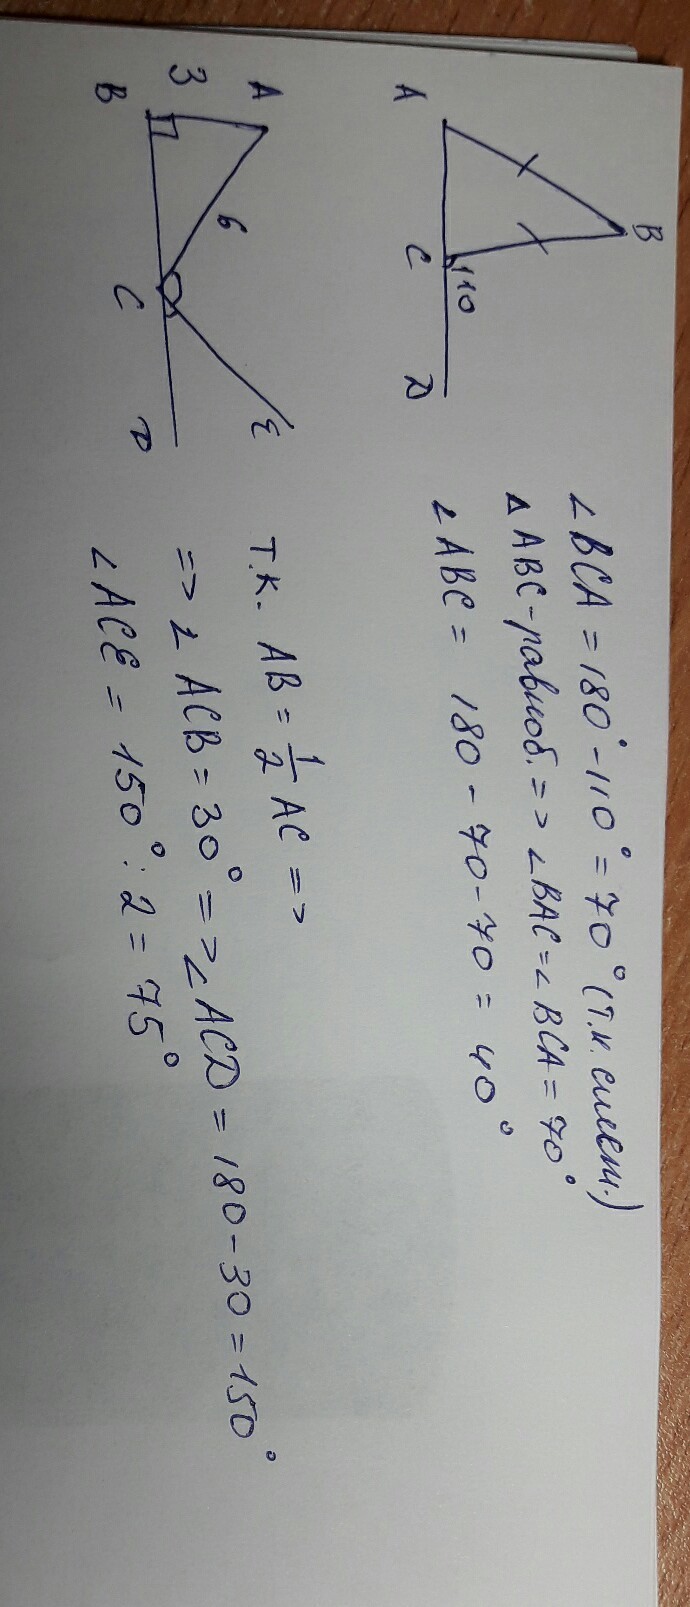 B
A
C
110
D
∠BCA = 180° - 110° = 70° (т.к. смежн.)
△ABC - равноб. => ∠BAC = ∠BCA = 70°
∠ABC = 180 - 70 - 70 = 40°
A
3
6
B
C
E
D
т.к. AB = 1/2 AC =>
=> ∠ACB = 30° => ∠ACD = 180 - 30 = 150°
∠ACE = 150° : 2 = 75°